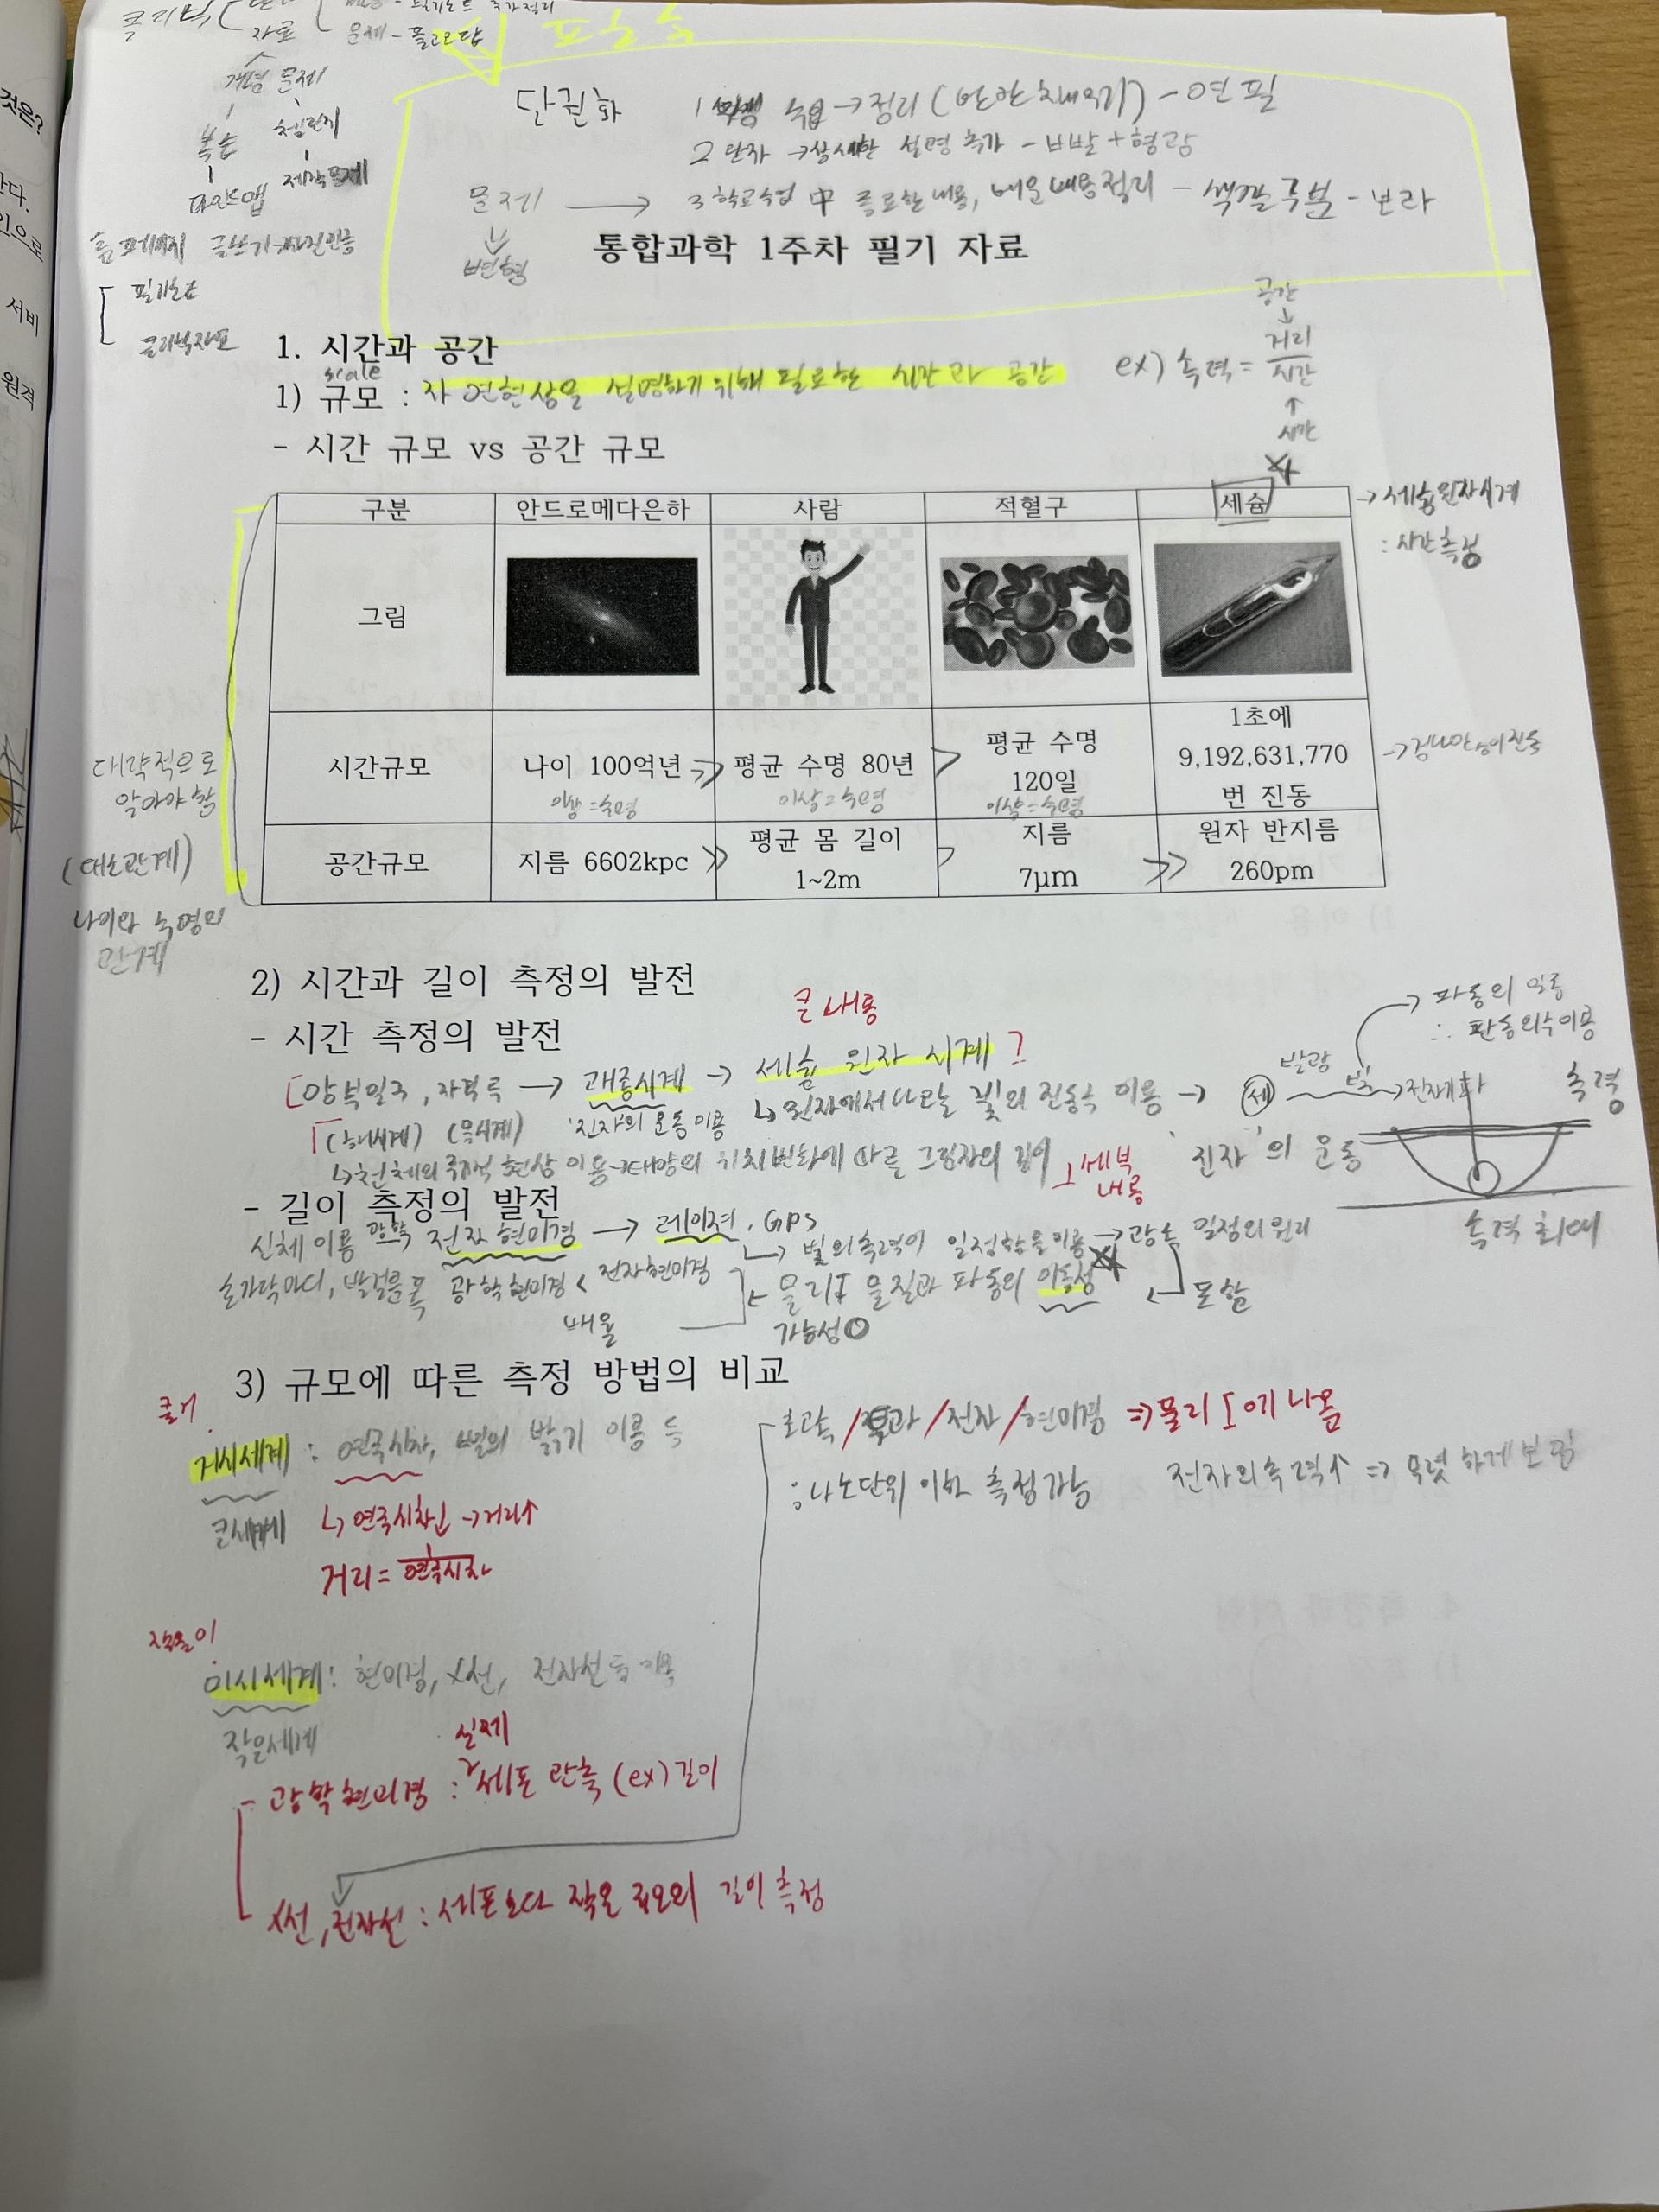 자료 문제 - 풀고 오답
개념 문제
복습 챌린지
마인드맵 제작문제
홈페이지 글쓰기→사진인증
필기노트
클리닉자료
것은?
서비
원격
단권화
1 수업→정리(빈칸채우기) - 연필
2 단차 →상세한 설명 추가 - 빨 + 형광
문제 → 3 학교수업 中 중요한 내용, 배운내용정리 - 색깔구분 - 보라
변형
통합과학 1주차 필기 자료
1. 시간과 공간
scale
1) 규모 : 자연현상을 설명하기 위해 필요한 시간과 공간
ex) 속력 = 거리/시간
공간
시간
- 시간 규모 vs 공간 규모
구분 안드로메다은하 사람 적혈구 세슘
→세슘원자시계
: 시간측정
그림
시간규모 나이 100억년 평균 수명 80년 평균 수명 120일 1초에 9,192,631,770번 진동
이상=수명 이상=수명 이상=수명
공간규모 지름 6602kpc 평균 몸 길이 1~2m 지름 7μm 원자 반지름 260pm
대략적으로
알아야 함
(대소관계)
나이와 수명의
관계
2) 시간과 길이 측정의 발전
- 시간 측정의 발전
큰 내용
앙부일구, 자격루 → 괘종시계 → 세슘 원자 시계
(해시계) (물시계) '진자'의 운동 이용 ↳원자에서 나오는 빛의 진동수 이용 → 세 발광 빛 → 전자기파
→ 파동의 일종
∴ 진동수 이용
↳천체의 주기적 현상 이용→태양의 위치변화에 따른 그림자의 길이
세부
내용
'진자'의 운동
속력
속력 최대
- 길이 측정의 발전
신체 이용 광학 전자 현미경 → 레이저, GPS
손가락마디, 발걸음 폭 광학현미경 < 전자현미경
배율
↳ 빛의 속력이 일정함을 이용 → 광속 일정의 원리
물리Ⅱ 물질과 파동의 이중성
가능성 O
포함
3) 규모에 따른 측정 방법의 비교
클 거
거시세계 : 연주시차, 별의 밝기 이용 등
큰세계
↳ 연주시차↓ →거리↑
거리 = 1/연주시차
작을 미
미시세계 : 현미경, X선, 전자선 등 이용
작은세계
실제
- 광학현미경 : 세포 관측 (ex) 길이
X선, 전자선 : 세포보다 작은 규모의 길이 측정
초고속 / /전자 /현미경 ⇒물리Ⅰ에 나옴
: 나노단위 이하 측정가능 전자의 속력↑ ⇒ 뚜렷하게 보임